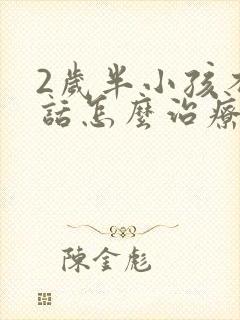 2歲半小孩不
話怎麼治療
陳金彪